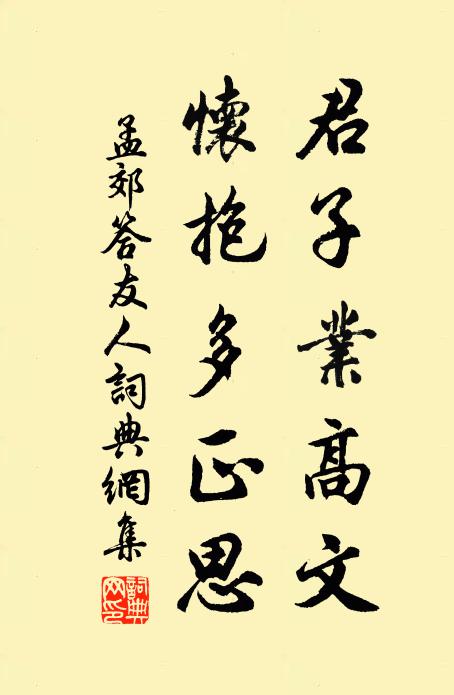 君子業高文
懷抱多正思
孟郊答友人詞典網集
詞典網印